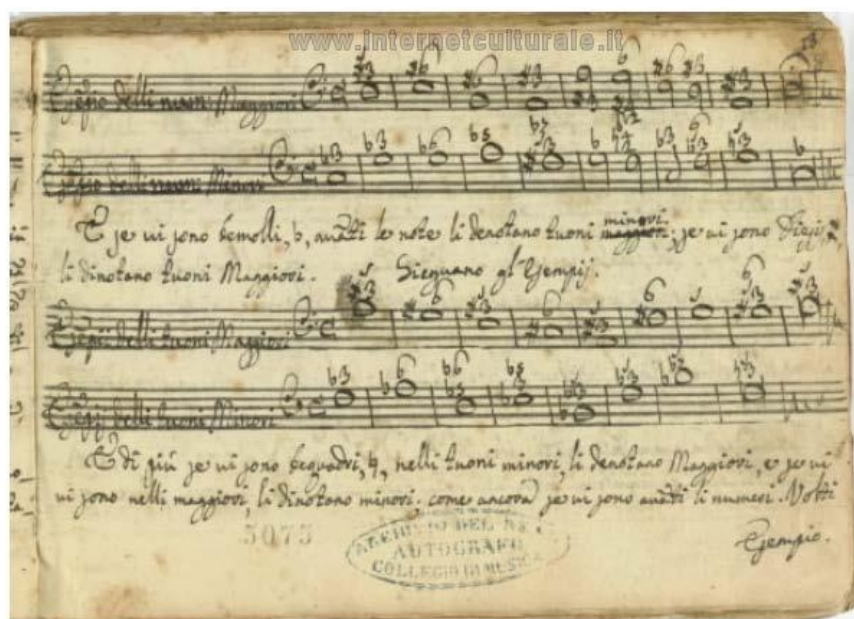 www.internetculturale.it
13
Esẽpio delli tuoni Maggiori
Esẽpio delli tuoni Minori
E se vi sono bemolli, b, avãti le note li denotano tuoni minori; se vi sono Diesis, #,
li dinotano tuoni Maggiori. Sieguano gl'Esempij.
Esẽpii delli tuoni Maggiori
Esẽpij delli tuoni Minori
E di più se vi sono bequadri, ♮, nelli tuoni minori, li denotano Maggiori, e se vi
vi sono nelli maggiori, li dinotano minori, come ancora se vi sono avãti li numeri. Volti
Esempio.
5075
ARCHIVIO DEL
AUTOGRAFO
COLLEGIO DI MUSICA